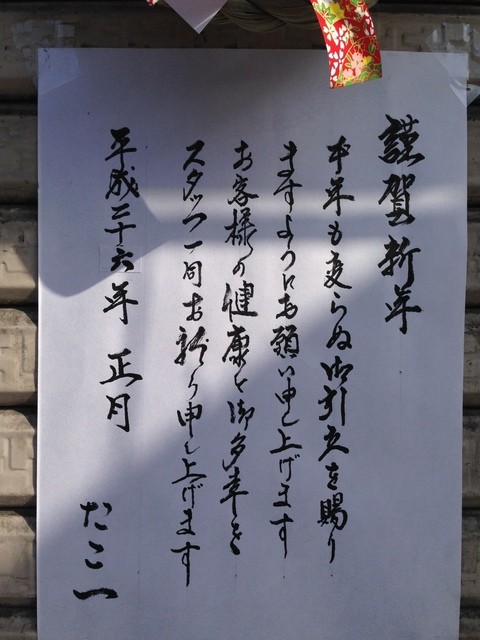 謹賀新年
本年も変らぬ御引立を賜り
ますようにお願い申し上げます
お客様の健康と御多幸を
スタッフ一同お祈り申し上げます
平成二十六年 正月
たこ一